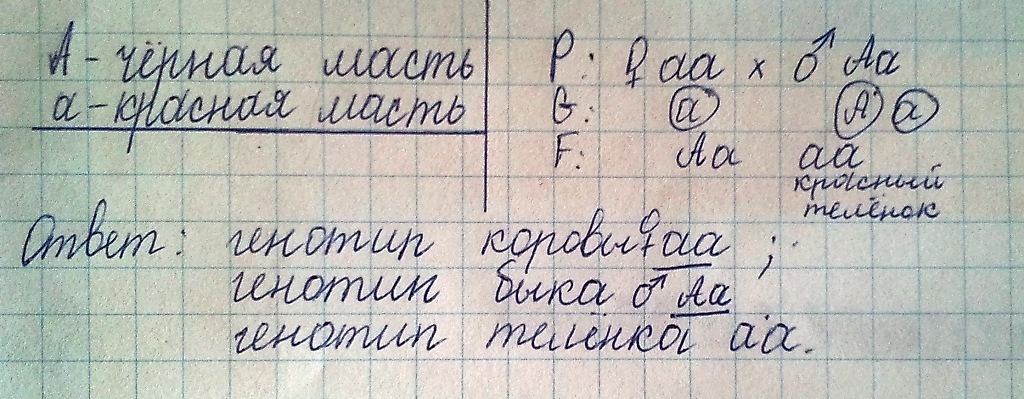 А - чёрная масть
а - красная масть
Р: ♀ аа х ♂ Аа
G: а А а
F: Аа аа
красный
телёнок
Ответ: генотип коровы ♀ аа ;
генотип быка ♂ Аа
генотип телёнка аа.